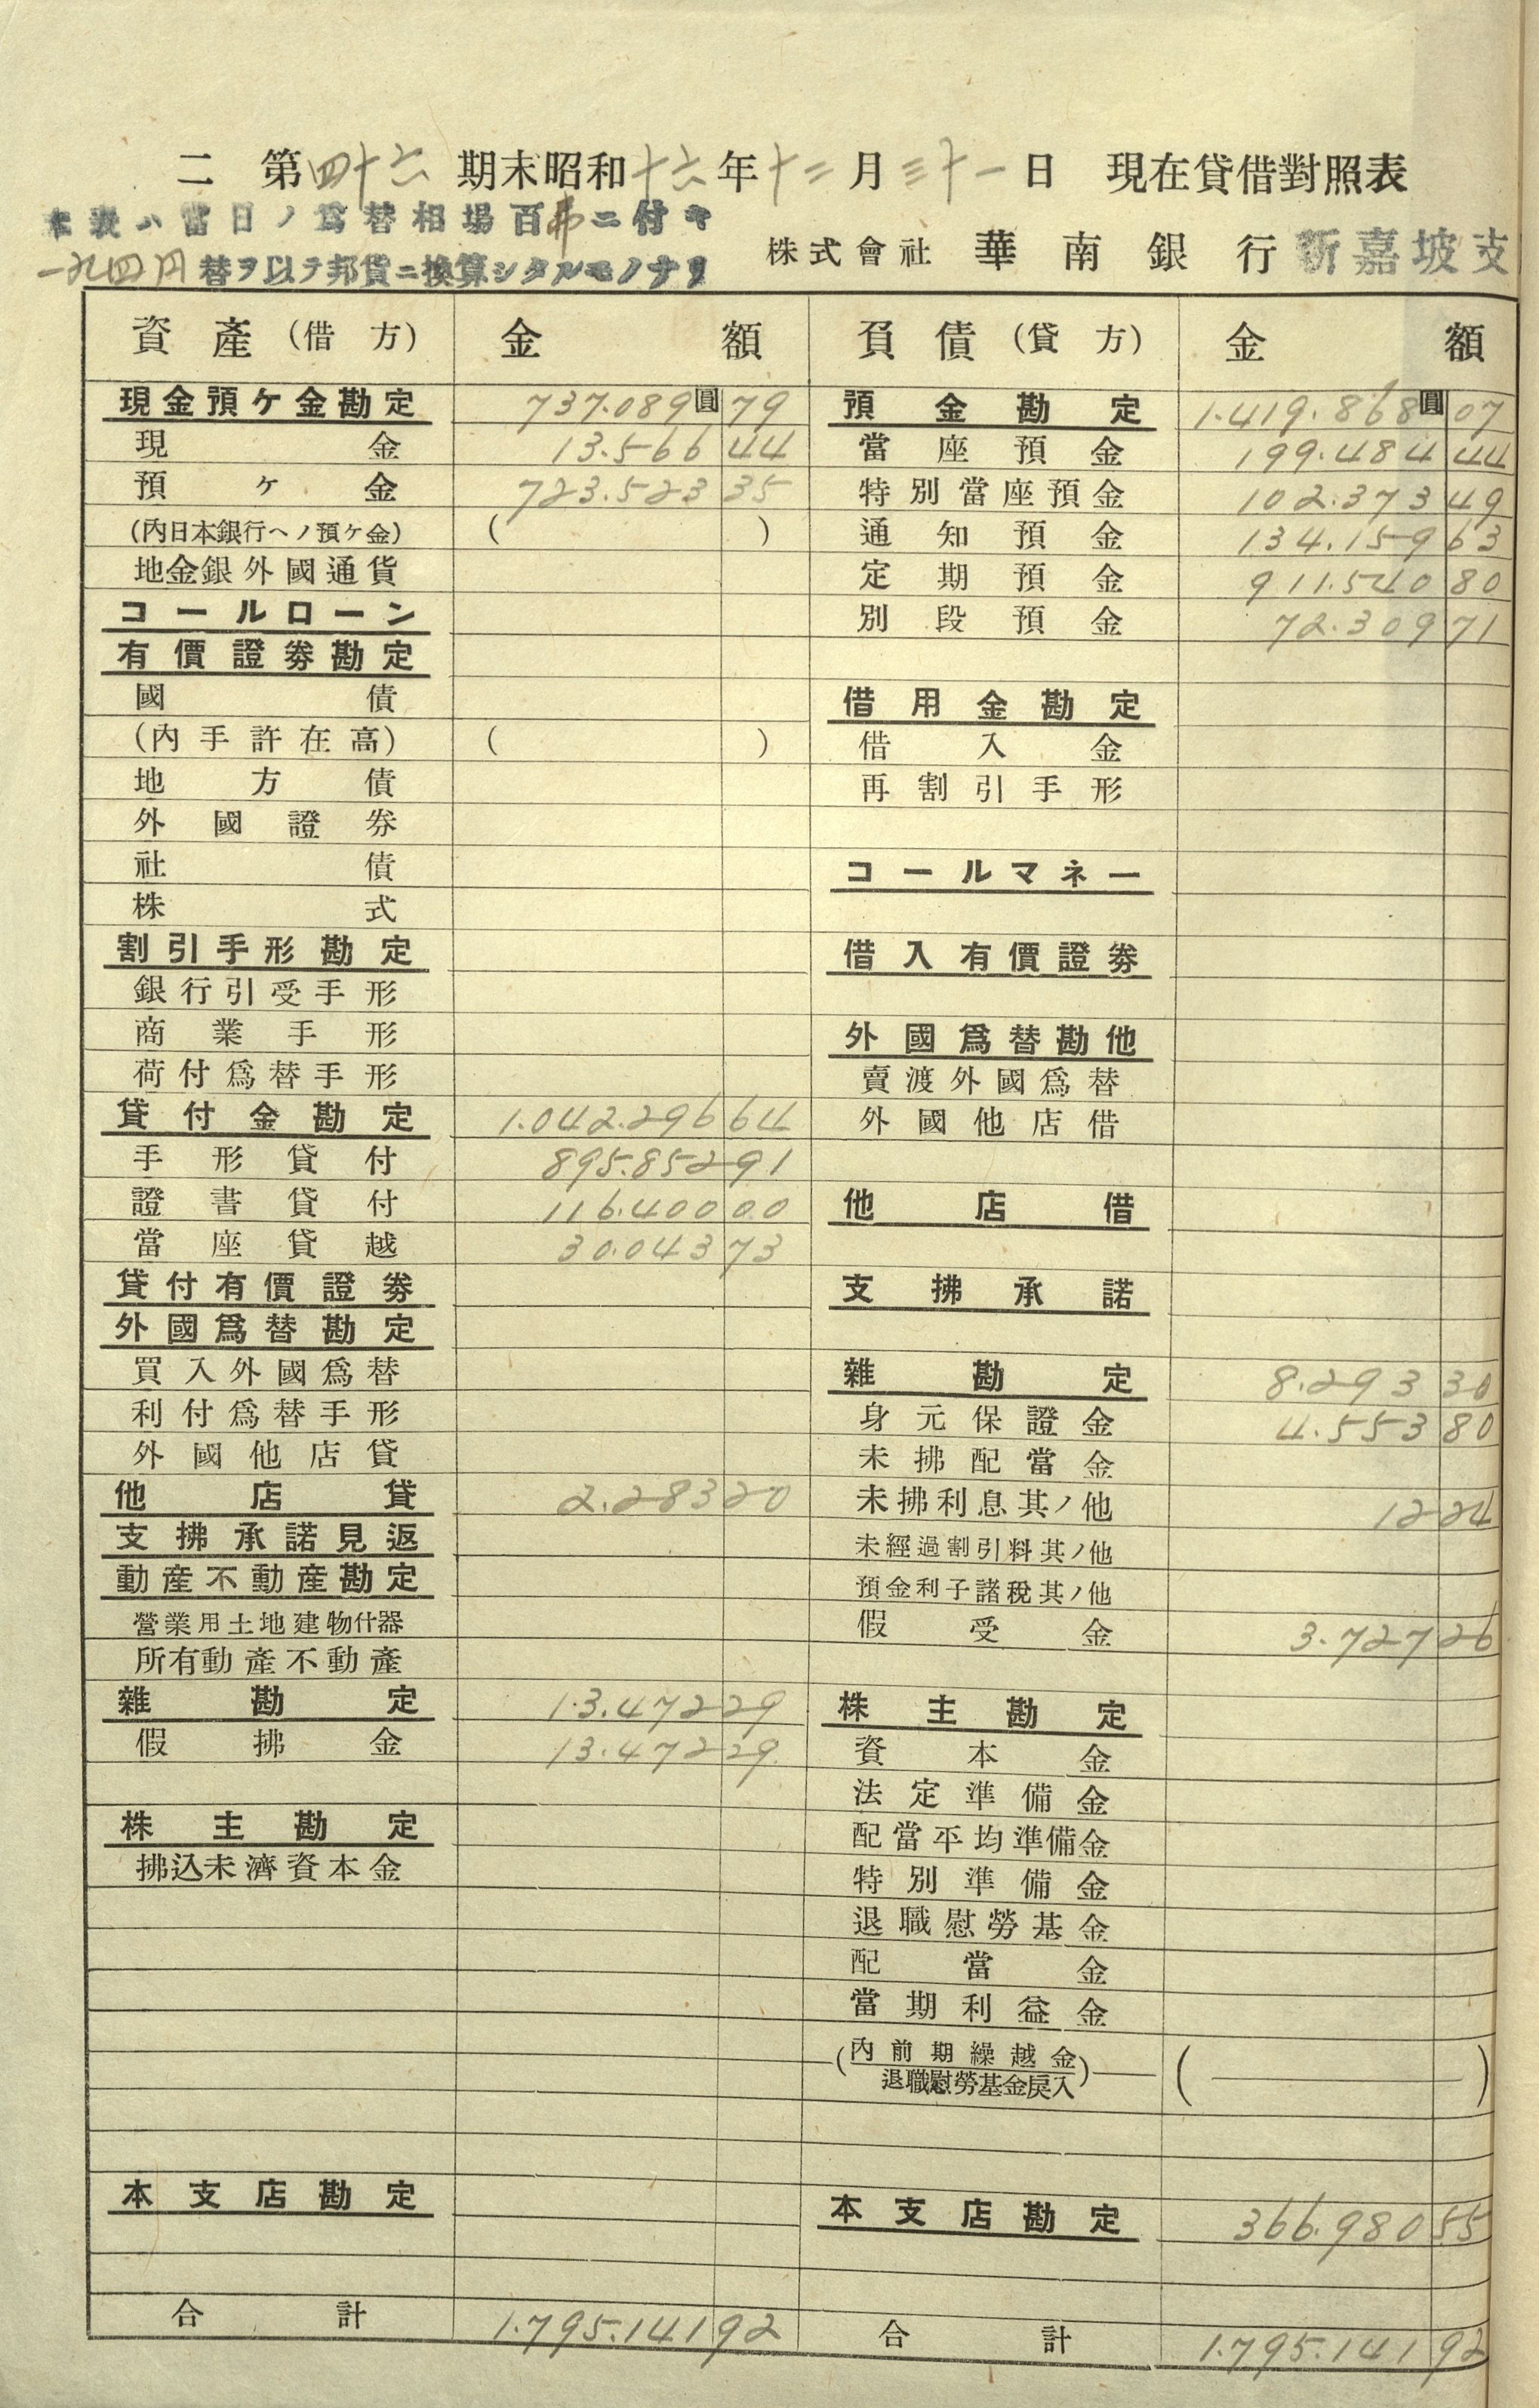 二 第四十六期末昭和十六年十二月三十一日 現在貸借對照表
本表ハ當日ノ爲替相場百弗ニ付キ
一九四円替ヲ以テ邦貨ニ換算シタルモノナリ
株式會社 華南銀行新嘉坡支
資產(借方) 金額
現金預ケ金勘定 737.089圓79
現金 13.566 44
預ケ金 723.523 35
(內日本銀行ヘノ預ケ金) ( )
地金銀外國通貨
コールローン
有價證券勘定
國債
(內手許在高) ( )
地方債
外國證券
社債
株式
割引手形勘定
銀行引受手形
商業手形
荷付爲替手形
貸付金勘定 1.042.296 64
手形貸付 895.852 91
證書貸付 116.400 00
當座貸越 30.043 73
貸付有價證券
外國爲替勘定
買入外國爲替
利付爲替手形
外國他店貸
他店貸 2.283 20
支拂承諾見返
動產不動產勘定
營業用土地建物什器
所有動產不動產
雜勘定 13.472 29
假拂金 13.472 29
株主勘定
拂込未濟資本金
本支店勘定
合計 1.795.141 92
負債(貸方) 金額
預金勘定 1.419.868圓07
當座預金 199.484 44
特別當座預金 102.373 49
通知預金 134.159 63
定期預金 911.540 80
別段預金 72.309 71
借用金勘定
借入金
再割引手形
コールマネー
借入有價證券
外國爲替勘他
賣渡外國爲替
外國他店借
他店借
支拂承諾
雜勘定 8.293 30
身元保證金 4.553 80
未拂配當金
未拂利息其ノ他 12 24
未經過割引料其ノ他
預金利子諸稅其ノ他
假受金 3.727 26
株主勘定
資本金
法定準備金
配當平均準備金
特別準備金
退職慰勞基金
配當金
當期利益金
(內前期繰越金 ( )
退職慰勞基金戾入)
本支店勘定 366.980 55
合計 1.795.141 92